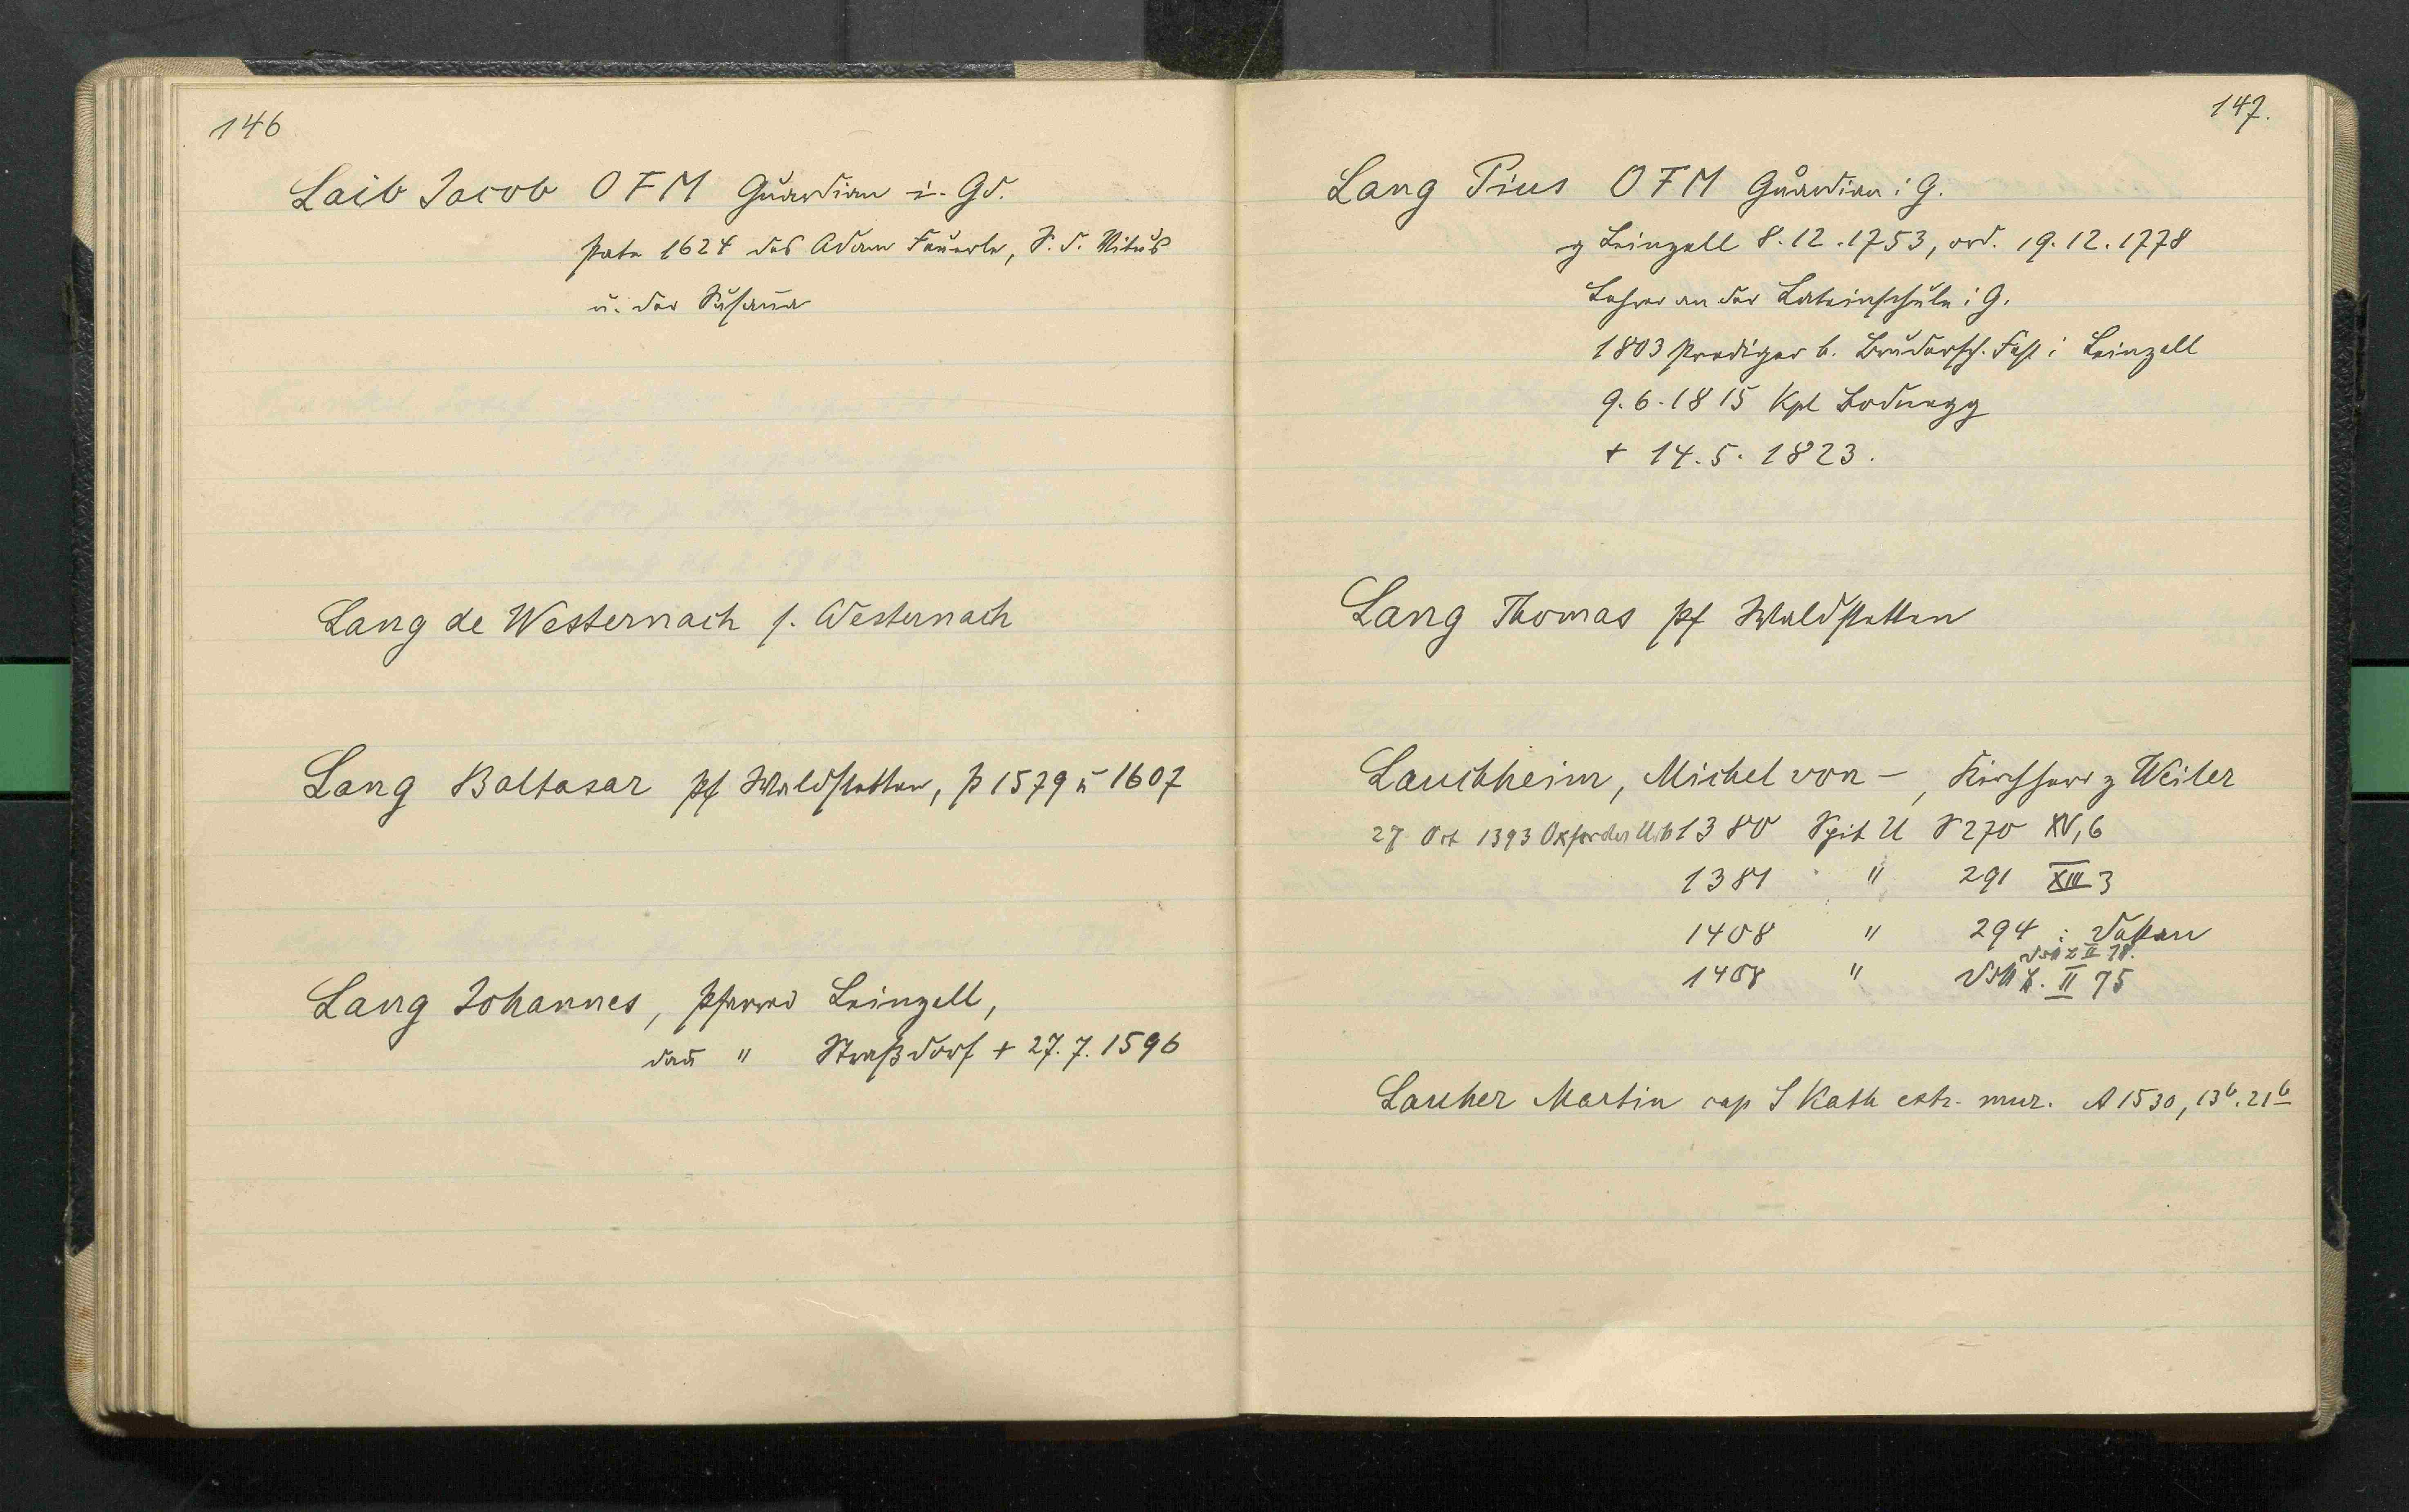 146
Laib Jacob OFM Guardian i. Gd.
Pate 1624 des Adam Feuerle, S. d. Vitus
u. der Susana
Lang de Westernach s. Westernach
Lang Baltasar Pf Waldstetten, p 1579 u 1607
Lang Johannes, Pfarrei Leinzell,
dan " Straßdorf + 27.7.1596
147.
Lang Pius OFM Guardian i G.
z Leinzell 8.12.1753, ord. 19.12.1778
Lehrer an der Lateinschule i G.
1803 Prediger b. Brudersch. Fest i Leinzell
9.6.1815 Kpl Bodnegg
+ 14.5.1823.
Lang Thomas Pf Waldstetten
Lauchheim, Michel von -, Kirchherr z Weiler
27 Oct 1393 Oxforder Urb 1380 Spit U S 270 XV,6
1381 " 291 XIII 3
1408 " 294
II 78.
1408 " II 75
Lauher Martin cap S Kath extr. mur. A 1530, 13b. 21b